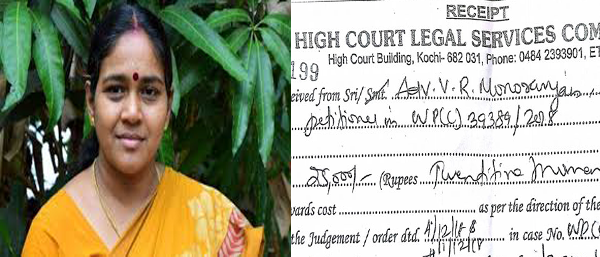 RECEIPT
HIGH COURT LEGAL SERVICES COM
High Court Building, Kochi- 682 031, Phone: 0484 2393901, ET
199
eived from Sri/ Smt. Adv. V. R. Manoranjan
petitioner in WP(C) 39389/2018
25,000/- (Rupees Twentifive
wards cost as per the direction of the
the Judgement / order dtd. 4/12/18 & in case No. WP(C